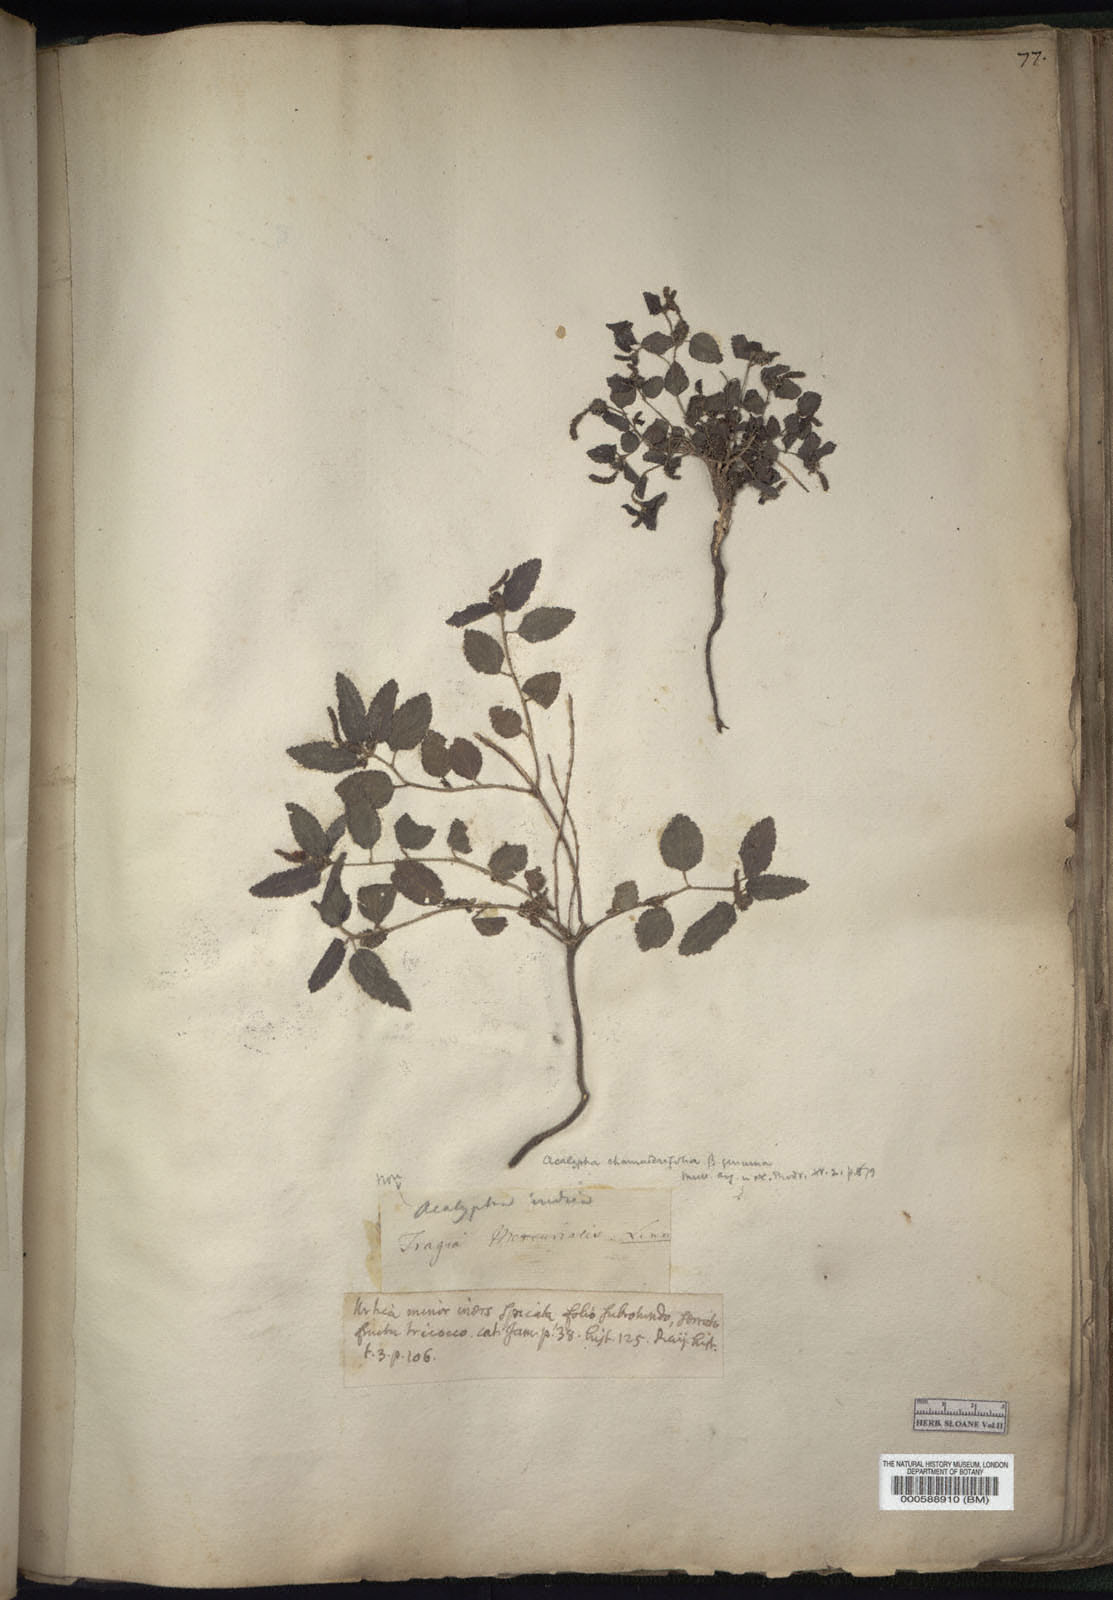 77.
Acalypha chamaedrifolia β genuina
Mull. Arg. in DC. Prodr. XV. 2. p. 879
non
Acalypha indica
Tragia Mercurialis. Linn
Urtica minor iners spicata folio subrotundo, serrato
fructu tricocco. cat. Jam. p. 38. hist. 125. Raij. hist.
t. 3. p. 106.
HERB. SLOANE Vol. II
THE NATURAL HISTORY MUSEUM, LONDON
DEPARTMENT OF BOTANY
000588910 (BM)